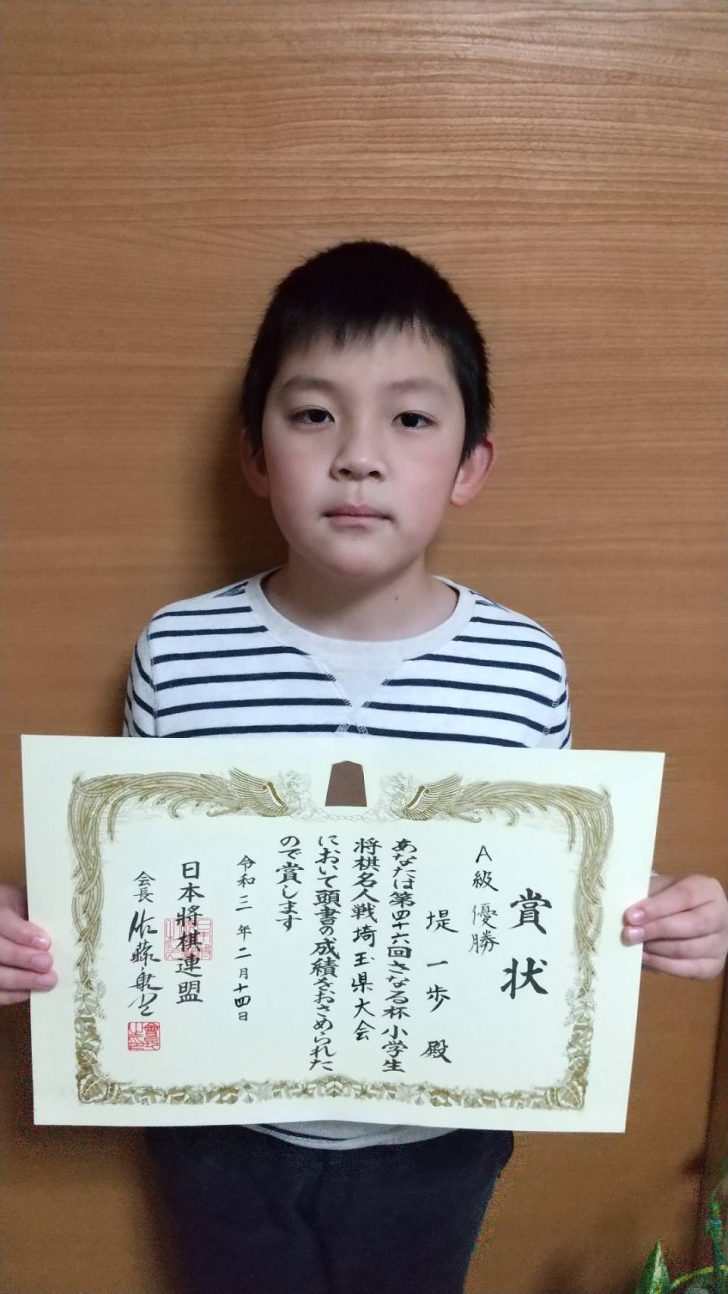 賞状
A級 優勝
堤 一歩 殿
あなたは第四十六回さなる杯小学生
将棋名人戦埼玉県大会
において頭書の成績をおさめられた
ので賞します
令和三年二月十四日
日本将棋連盟
会長 佐藤康光